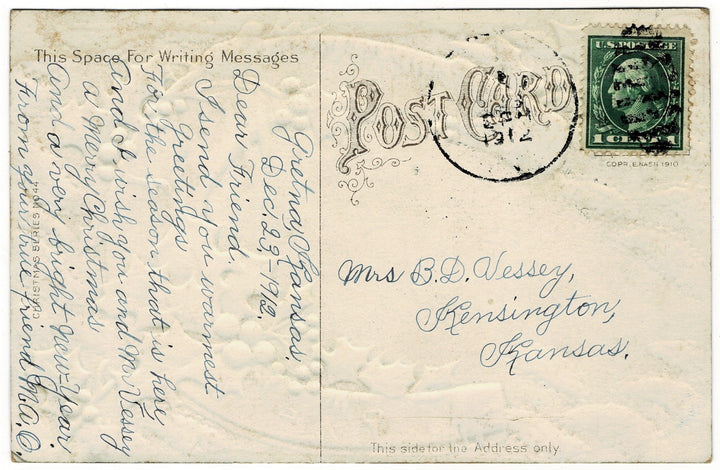 This Space For Writing Messages
Pretna, Kansas.
Dec. 23-1912.
Dear Friend.
I send you warmest
Greetings
For the season that is here
And I wish you and Mr Vessey
a Merry Christmas
And a very bright New-Year.
From your true friend M.A.O.
CHRISTMAS SERIES NO 44
POST CARD
1912
U.S. POSTAGE
1 CENT 1
COPR. E. NASH 1910
Mrs B. D. Vessey,
Kensington,
Kansas.
This side for the Address only